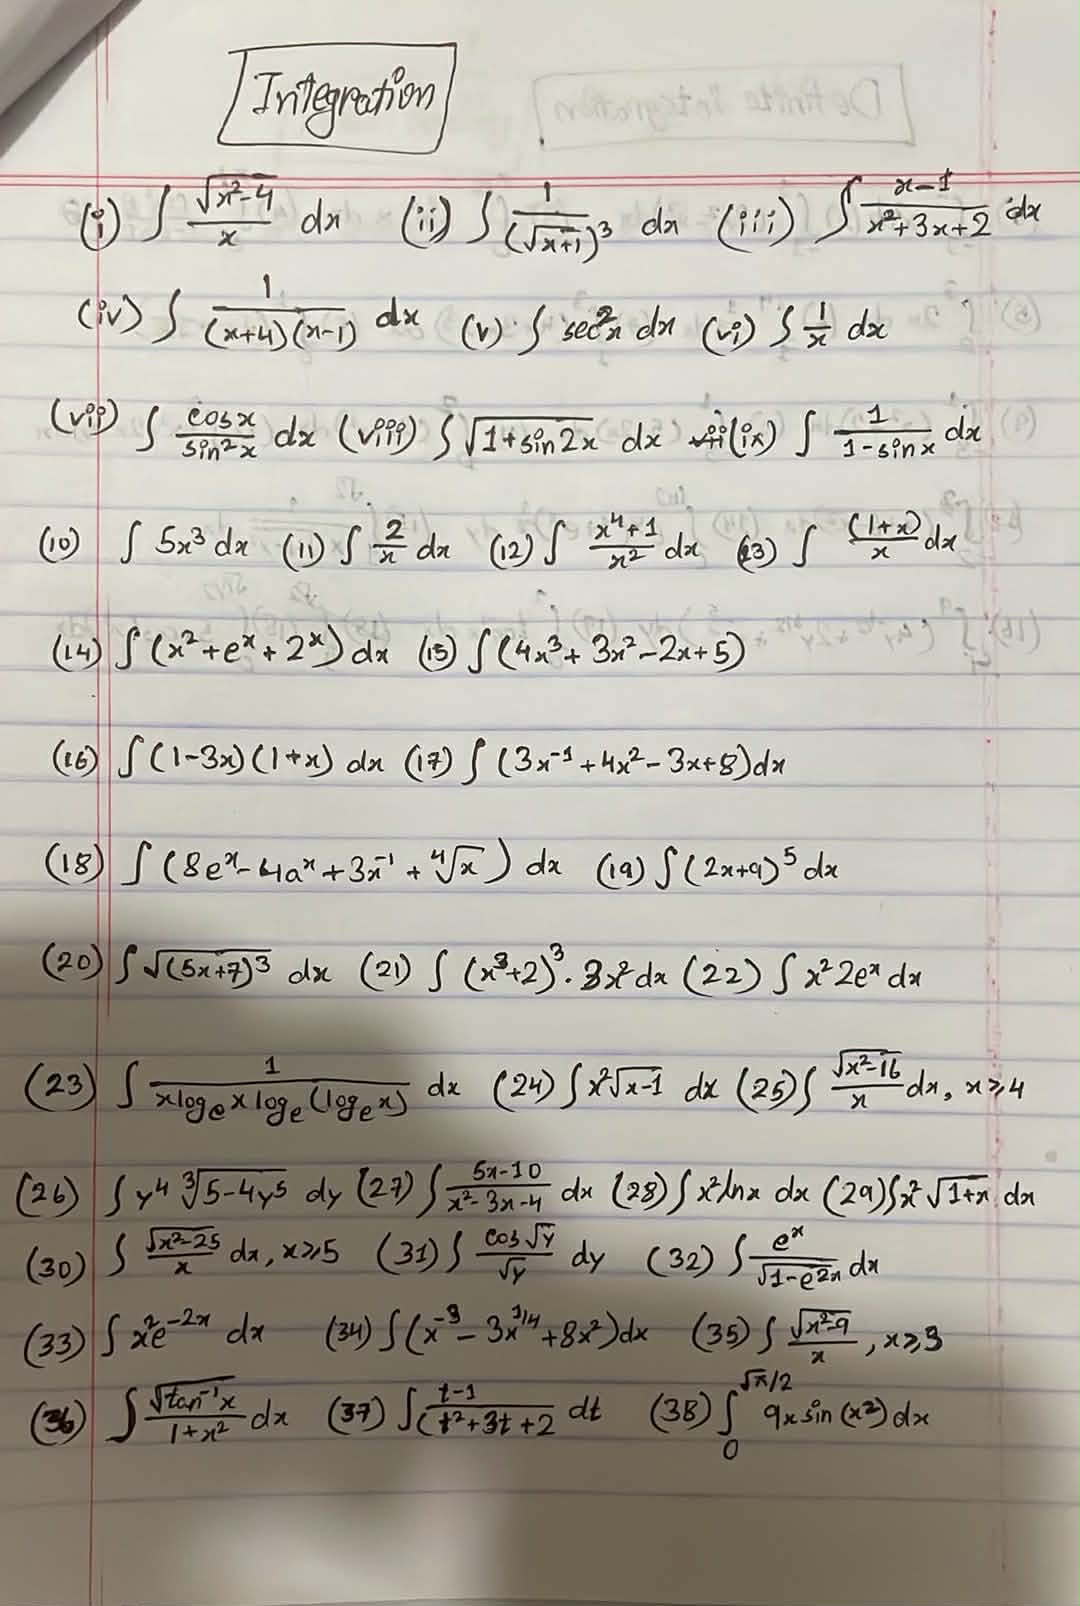 Integration
(i) ∫ √(x²-4)/x dx (ii) ∫ 1/(√(x+1))³ dx (iii) ∫ (x-1)/(x²+3x+2) dx
(iv) ∫ 1/((x+4)(x-1)) dx (v) ∫ sec²x dx (vi) ∫ 1/x dx
(vii) ∫ cosx/sin²x dx (viii) ∫ √(1+sin2x) dx (ix) ∫ 1/(1-sinx) dx
(10) ∫ 5x³ dx (11) ∫ 2/x dx (12) ∫ (x⁴+1)/x² dx (13) ∫ (1+x)/x dx
(14) ∫ (x²+eˣ+2ˣ) dx (15) ∫ (4x³+3x²-2x+5)
(16) ∫ (1-3x)(1+x) dx (17) ∫ (3x⁻¹+4x²-3x+8)dx
(18) ∫ (8eˣ-4aˣ+3x⁻¹+⁴√x) dx (19) ∫ (2x+9)⁵ dx
(20) ∫ √((5x+7)³) dx (21) ∫ (x³+2)³. 3x² dx (22) ∫ x² 2eˣ dx
(23) ∫ 1/(x logₑ x logₑ (logₑ x)) dx (24) ∫ x²√(x-1) dx (25) ∫ √(x²-16)/x dx, x≥4
(26) ∫ y⁴ ³√(5-4y⁵) dy (27) ∫ (5x-10)/(x²-3x-4) dx (28) ∫ x² lnx dx (29) ∫ x² √(1+x) dx
(30) ∫ √(x²-25)/x dx, x≥5 (31) ∫ cos√y/√y dy (32) ∫ eˣ/√(1-e²ˣ) dx
(33) ∫ x²e⁻²ˣ dx (34) ∫ (x⁻³-3x^(1/4)+8x²)dx (35) ∫ √(x²-9)/x, x≥3
(36) ∫ √(tan⁻¹x)/(1+x²) dx (37) ∫ (t-1)/(t²+3t+2) dt (38) ∫₀^(√π/2) 9x sin(x²) dx